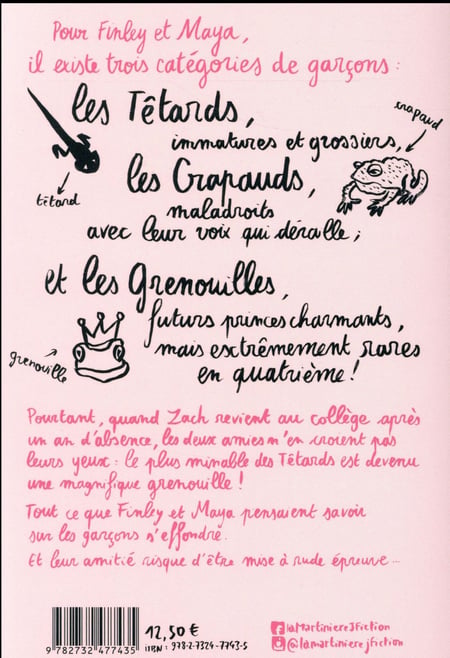 Pour Finley et Maya,
il existe trois catégories de garçons :
les Têtards,
immatures et grossiers,
crapaud
têtard
les Crapauds,
maladroits
avec leur voix qui déraille ;
et les Grenouilles,
futurs princes charmants,
mais extrêmement rares
en quatrième !
grenouille
Pourtant, quand Zach revient au collège après
un an d'absence, les deux amies n'en croient pas
leurs yeux : le plus minable des Têtards est devenu
une magnifique grenouille !
Tout ce que Finley et Maya pensaient savoir
sur les garçons s'effondre.
Et leur amitié risque d'être mise à rude épreuve...
9 782732 477435
12,50 €
ISBN : 978-2-7324-7743-5
laMartiniereJFiction
@lamartinierejfiction